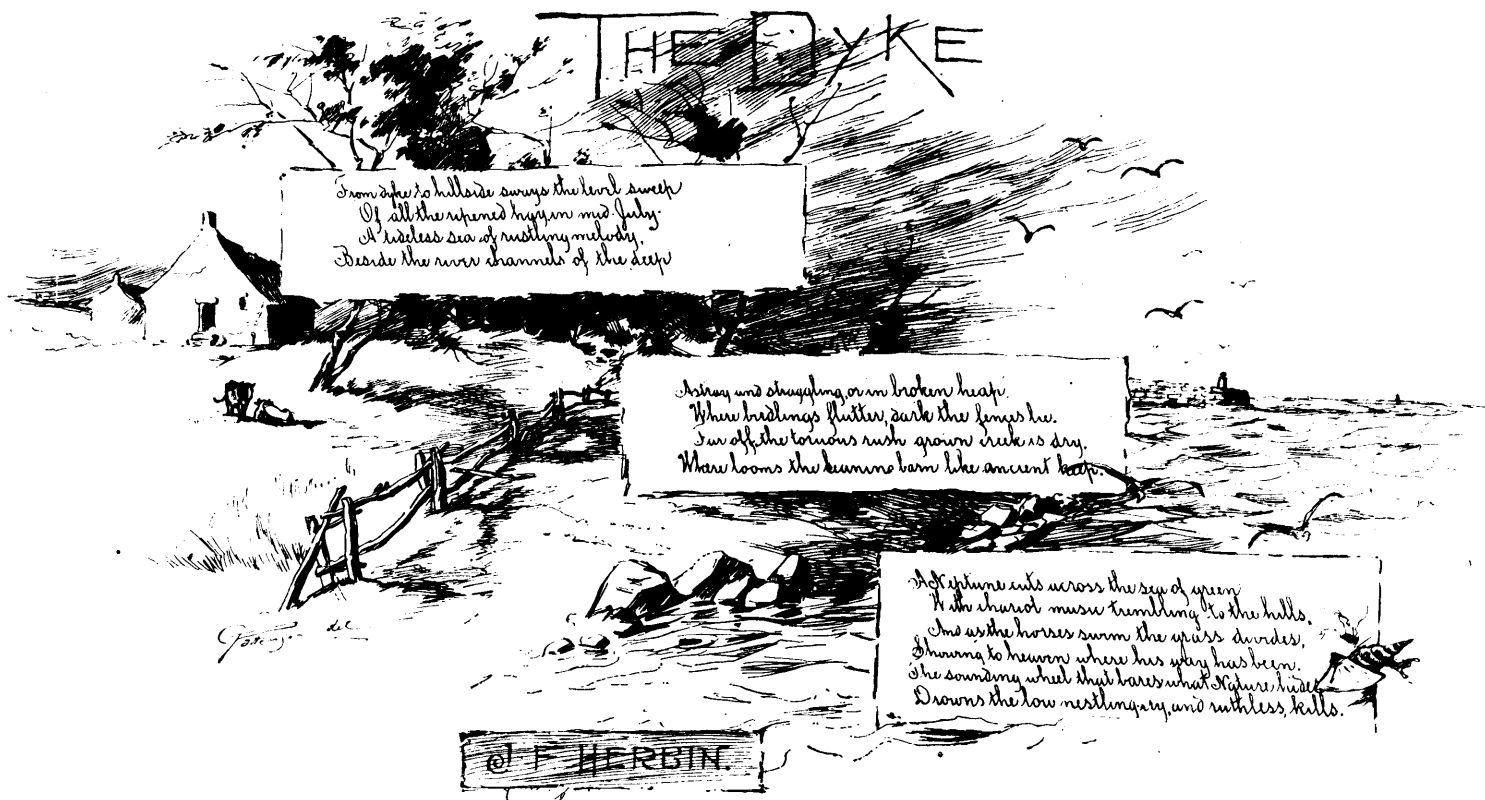 THE DYKE
From dyke to hillside sways the level sweep
Of all the ripened hay in mid-July.
A tideless sea of rustling melody,
Beside the river channels of the deep
Astray and straggling, or in broken heap.
Where birdlings flutter, dark the fences lie.
Far off, the tortuous rush grown creek is dry,
Where looms the leaning barn like ancient keep.
A Neptune cuts across the sea of green
With chariot music trembling to the hills,
And as the horses swim the grass divides,
Showing to heaven where his way has been.
The sounding wheel that bares what Nature hides
Drowns the low nestling-cry, and ruthless, kills.
del
J F HERBIN.